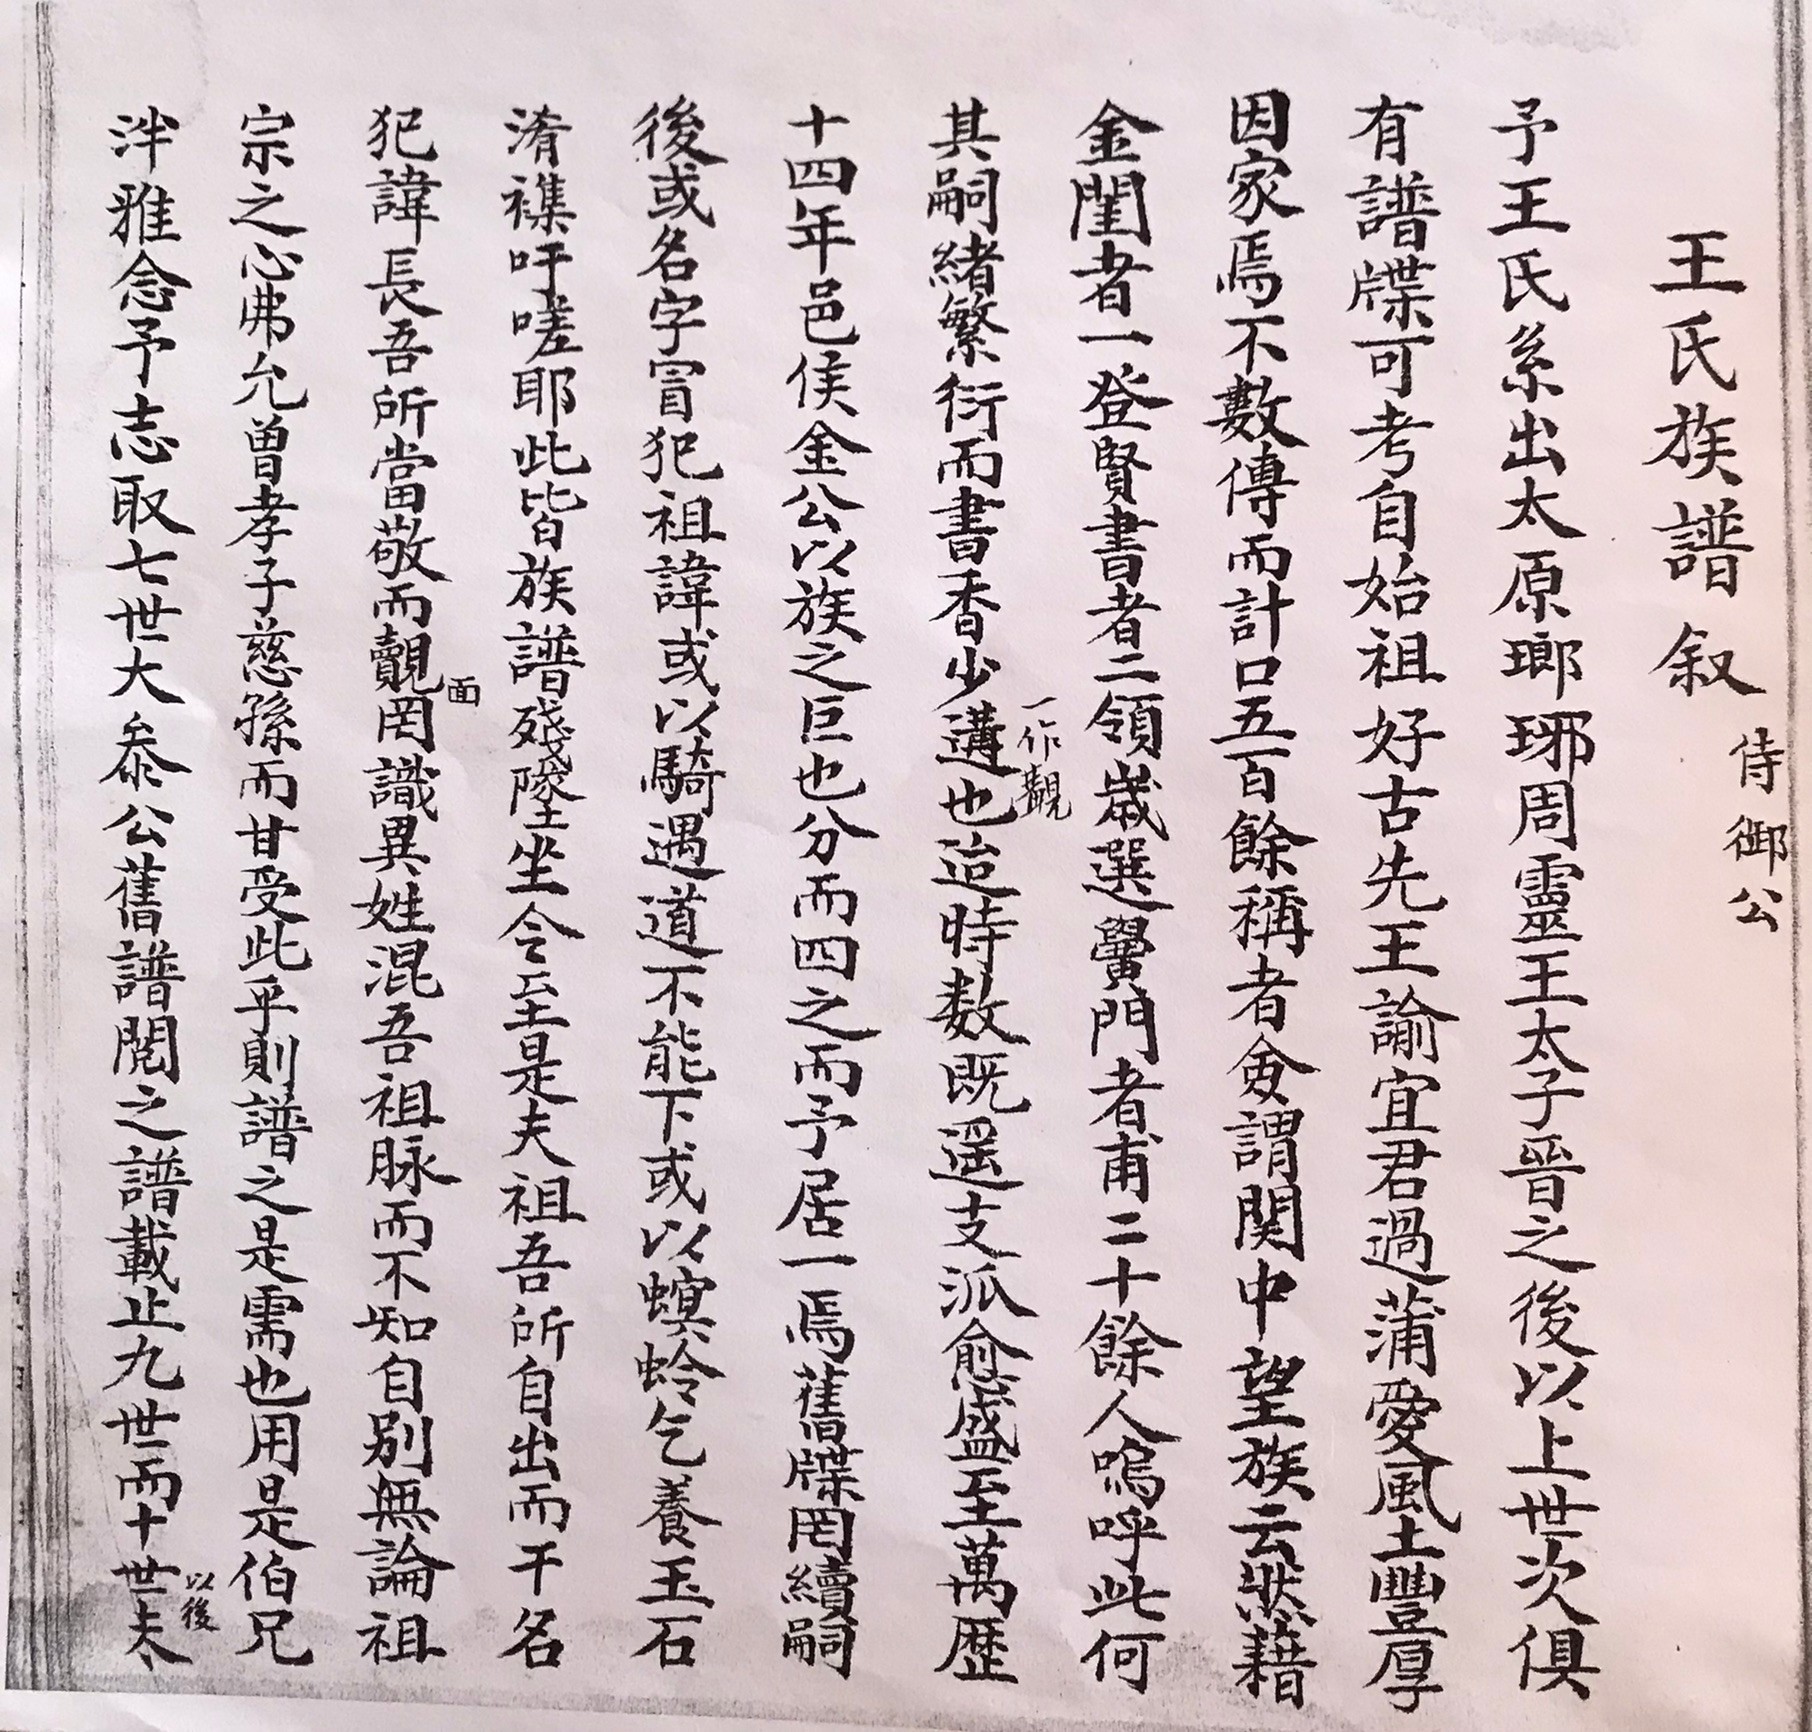 王氏族譜叙
侍御公
予王氏系出太原瑯琊周靈王太子晉之後以上世次俱
有譜牒可考自始祖好古先王諭宜君過蒲愛風土豐厚
因家焉不數傳而計口五百餘稱者僉謂関中望族云然藉
金閨者一登賢書者二領歲選黌門者甫二十餘人嗚呼此何
其嗣緒繁衍而書香少遘也迨時数既遥支派愈盛至萬歷
一作觀
十四年邑侯金公以族之巨也分而四之而予居一焉舊牒罔續嗣
後或名字冒犯祖諱或以騎遇道不能下或以螟蛉乞養玉石
淆襍吁嗟耶此皆族譜殘墜坐令至是夫祖吾所自出而干名
犯諱長吾所當敬而覿罔識異姓混吾祖脉而不知自别無論祖
面
宗之心弗允曾孝子慈孫而甘受此乎則譜之是需也用是伯兄
泮雅念予志取七世大叅公舊譜閱之譜載止九世而十世夫
以後